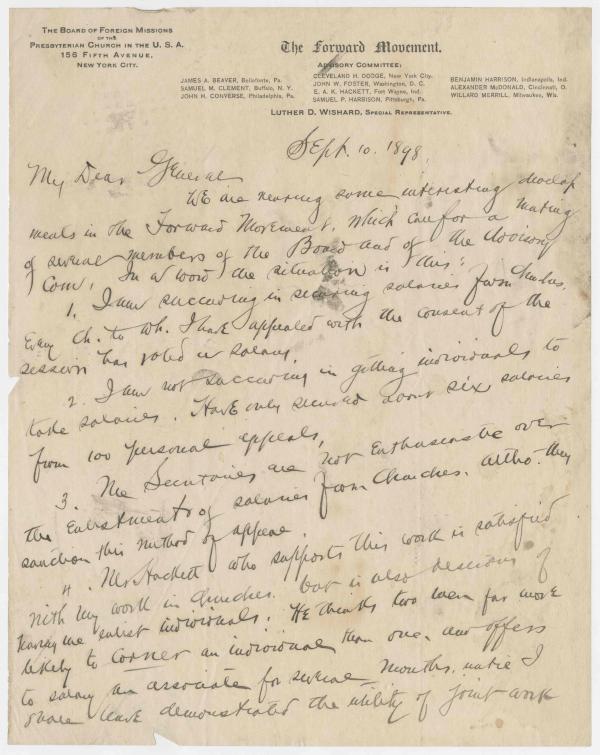 THE BOARD OF FOREIGN MISSIONS
OF THE
PRESBYTERIAN CHURCH IN THE U. S. A.
156 FIFTH AVENUE,
NEW YORK CITY.
The Forward Movement.
ADVISORY COMMITTEE:
JAMES A. BEAVER, Bellefonte, Pa.
SAMUEL M. CLEMENT, Buffalo, N. Y.
JOHN H. CONVERSE, Philadelphia, Pa.
CLEVELAND H. DODGE, New York City.
JOHN W. FOSTER, Washington, D. C.
E. A. K. HACKETT, Fort Wayne, Ind.
SAMUEL P. HARBISON, Pittsburg, Pa.
BENJAMIN HARRISON, Indianapolis, Ind.
ALEXANDER McDONALD, Cincinnati, O.
WILLARD MERRILL, Milwaukee, Wis.
LUTHER D. WISHARD, SPECIAL REPRESENTATIVE.
Sept. 10. 1898.
My Dear General
We are nearing some interesting develop
ments in the Forward Movement, which call for a meeting
of several members of the Board and of the Advisory
Com. In a word the situation is this:
1. I am succeeding in securing salaries from churches.
Every Ch. to wh. I have appealed with the consent of the
session has voted a salary.
2. I am not succeeding in getting individuals to
take salaries. Have only secured about six salaries
from 100 personal appeals.
3. The Secretaries are not enthusiastic over
the enlistment of salaries from Churches. altho. they
sanction this method of appeal.
4. Mr Hackett who supports this work is satisfied
with my work in churches. but is also desirous of
having me enlist individuals. He thinks two men far more
likely to corner an individual than one, and offers
to salary an associate for several months, until I
shall have demonstrated the utility of joint work